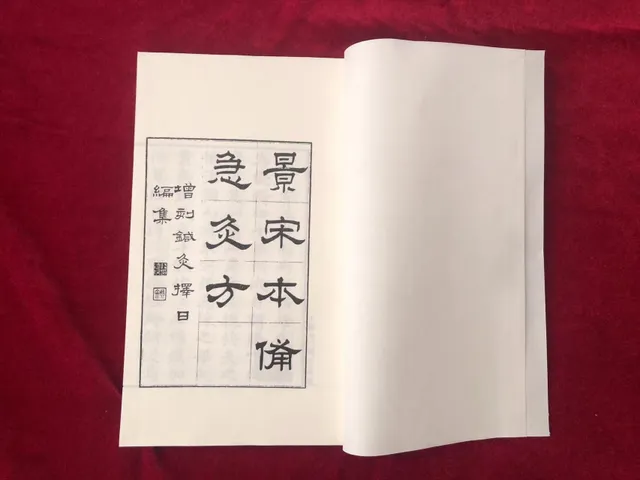 景宋本備
急灸方
增刻鍼灸擇日
編集